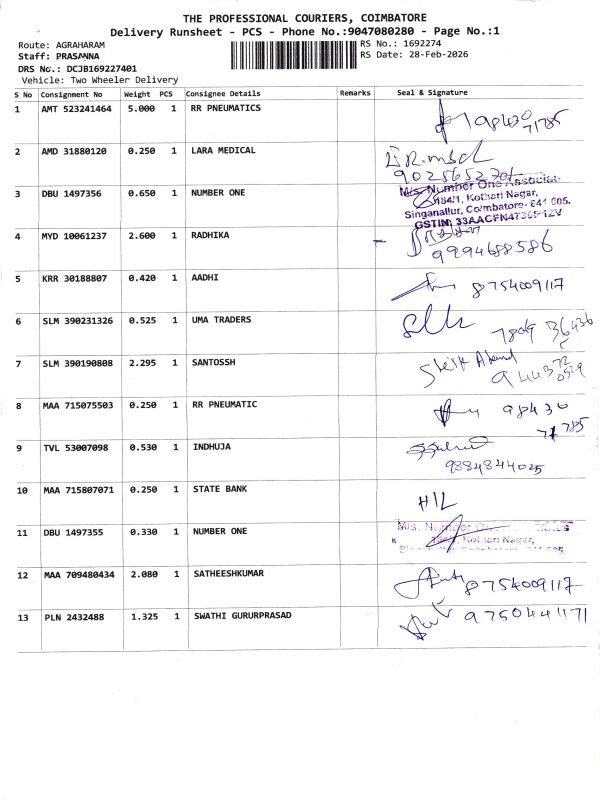 THE PROFESSIONAL COURIERS, COIMBATORE
Delivery Runsheet - PCS - Phone No.:9047080280 - Page No.:1
Route: AGRAHARAM RS No.: 1692274
Staff: PRASANNA RS Date: 28-Feb-2026
DRS No.: DCJB169227401
Vehicle: Two Wheeler Delivery
S No Consignment No Weight PCS Consignee Details Remarks Seal & Signature
1 AMT 523241464 5.000 1 RR PNEUMATICS 98430
71785
2 AMD 31880120 0.250 1 LARA MEDICAL
3 DBU 1497356 0.650 1 NUMBER ONE M/s. Number One Associat
184/1, Kothari Nagar,
Singanallur, Coimbatore- 641 005.
4 MYD 10061237 2.600 1 RADHIKA 9994688586
5 KRR 30188807 0.420 1 AADHI 8754009117
6 SLM 390231326 0.525 1 UMA TRADERS 7809 36436
7 SLM 390190808 2.295 1 SANTOSSH
8 MAA 715075503 0.250 1 RR PNEUMATIC 98430
71785
9 TVL 53007098 0.530 1 INDHUJA 9884844025
10 MAA 715807071 0.250 1 STATE BANK H1L
11 DBU 1497355 0.330 1 NUMBER ONE M/s. Number One
Kothari Nagar,
12 MAA 709480434 2.080 1 SATHEESHKUMAR 8754009117
13 PLN 2432488 1.325 1 SWATHI GURURPRASAD 9750441171